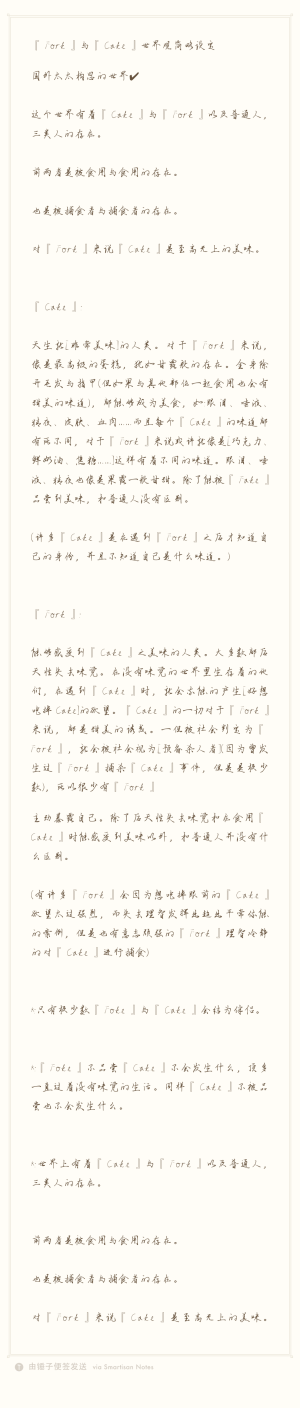 『 Fork 』与『 Cake 』世界观简略设定
国外太太构思的世界✔
这个世界有着『 Cake 』与『 Fork 』以及普通人，
三类人的存在。
前两者是被食用与食用的存在。
也是被捕食者与捕食者的存在。
对『 Fork 』来说『 Cake 』是至高无上的美味。
『 Cake 』:
天生就[非常美味]的人类。对于『 Fork 』来说，
像是最高级的蛋糕，犹如甘露般的存在。全身除
开毛发与指甲(但如果与其他部位一起食用也会有
甜美的味道)，都能够成为美食，如眼泪、唾液、
精液、皮肤、血肉……而且每个『 Cake 』的味道都
有所不同，对于『 Fork 』来说或许就像是[巧克力、
鲜奶油、焦糖……]这样有着不同的味道。眼泪、唾
液、精液也像是果露一般甘甜。除了能被『 Fake 』
品尝到美味，和普通人没有区别。
(许多『 Cake 』是在遇到『 Fork 』之后才知道自
己的身份，并且不知道自己是什么味道。)
『 Fork 』:
能够感觉到『 Cake 』之美味的人类。大多数都后
天性失去味觉。在没有味觉的世界里生存着的他
们，在遇到『 Cake 』时，就会本能的产生[好想
吃掉 Cake]的欲望。『 Cake 』的一切对于『 Fork 』
来说，都是甜美的诱惑。一但被社会判定为『
Fork 』，就会被社会视为[预备杀人者](因为曾发
生过『 Fork 』捕杀『 Cake 』事件，但是是极少
数)，所以很少有『 Fork 』
主动暴露自己。除了后天性失去味觉和在食用『
Cake 』时能感觉到美味以外，和普通人并没有什
么区别。
(有许多『 Fork 』会因为想吃掉眼前的『 Cake 』
欲望太过强烈，而失去理智发挥出超出平常体能
的案例，但是也有意志顽强的『 Fork 』理智冷静
的对『 Cake 』进行捕食)
※只有极少数『 Foke 』与『 Cake 』会结为伴侣。
※『 Fork 』不品尝『 Cake 』不会发生什么，顶多
一直过着没有味觉的生活。同样『 Cake 』不被品
尝也不会发生什么。
※世界上有着『 Cake 』与『 Fork 』以及普通人，
三类人的存在。
前两者是被食用与食用的存在。
也是被捕食者与捕食者的存在。
对『 Fork 』来说『 Cake 』是至高无上的美味。
由锤子便签发送 via Smartisan Notes